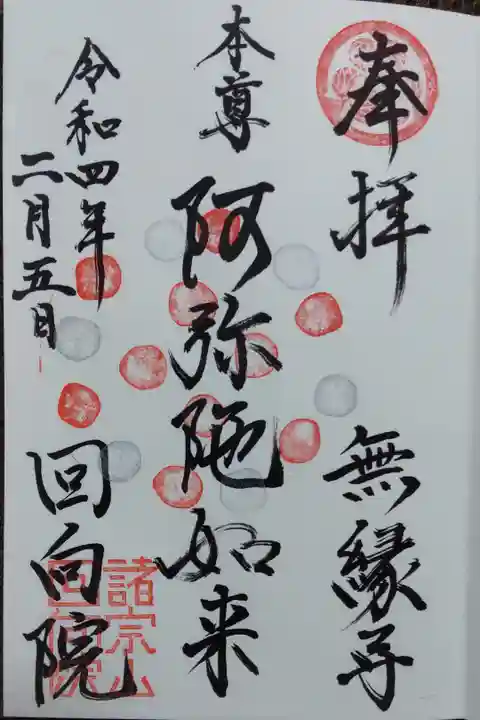 奉拝　無縁寺
本尊　阿弥陀如来
令和四年
二月五日
回向院
諸宗山
回向院